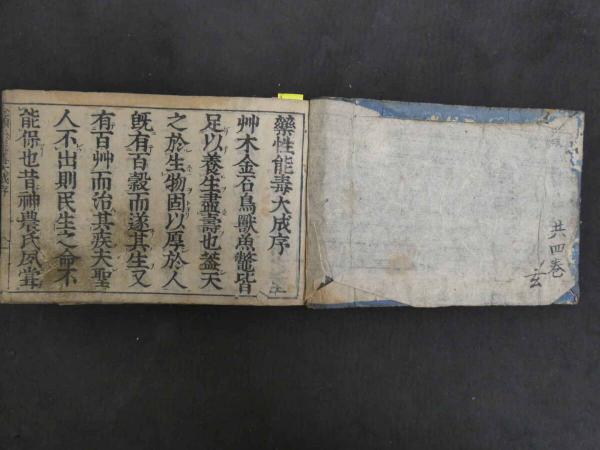 共四巻
玄
藥性能毒大成序
艸木金石鳥獸魚鼈皆
足以養生盡壽也蓋天
之於生物固以厚於人
既有百穀而遂其生又
有百艸而治其疾夫聖
人不出則民生之命不
能保也昔神農氏夙嘗